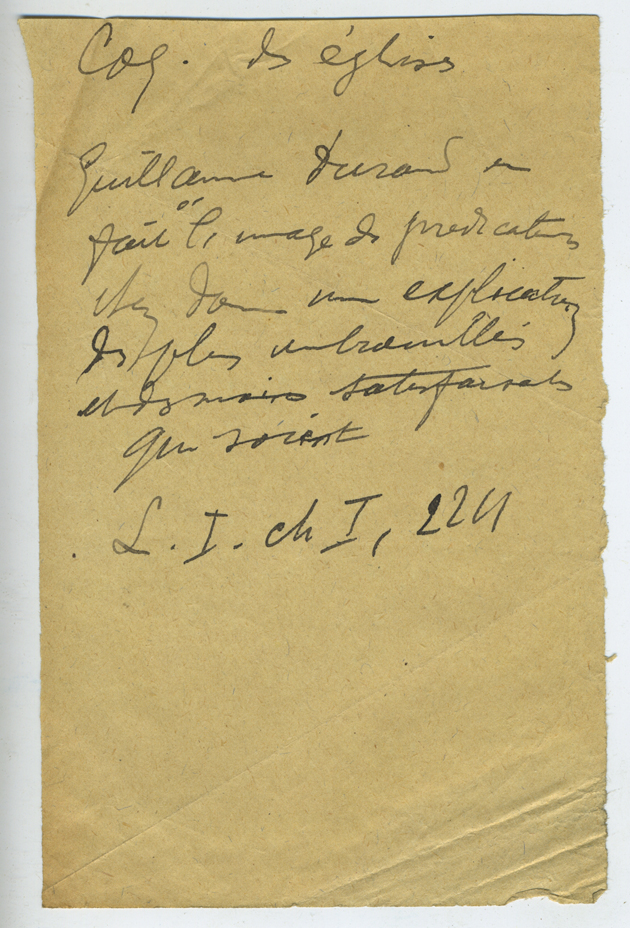 Coq. des églises
Guillaume Durand en
fait l'image des prédicateurs
dans une explication
des plus embrouillées
et des moins satisfaisantes
qui soient
L. I. ch I, 22